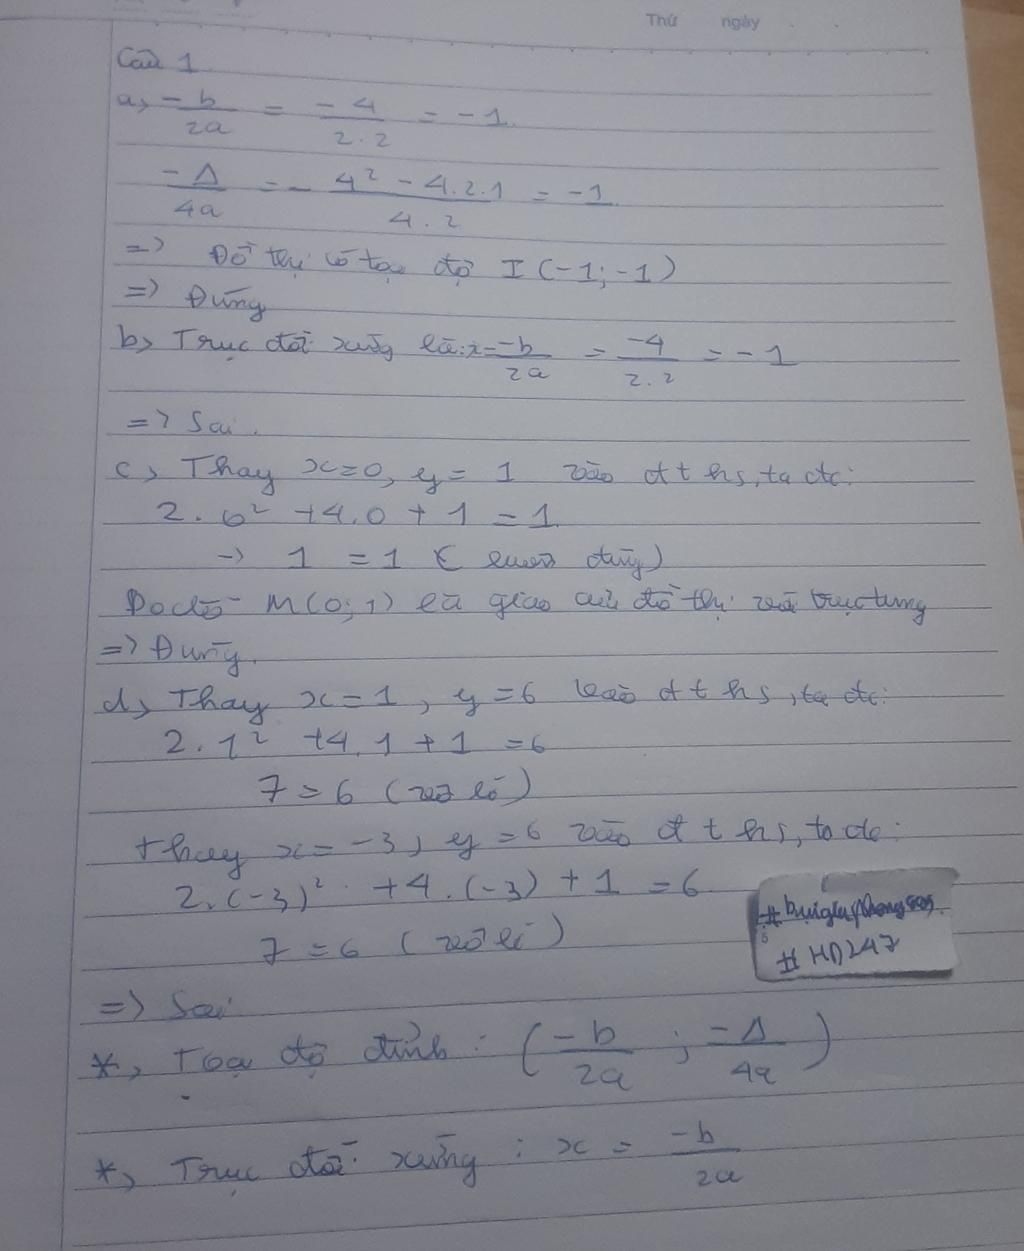 Thứ ngày . .
Câu 1
a, -b/2a = -4/2.2 = -1.
-Δ/4a = - 4² - 4.2.1/4.2 = -1
=> Đồ thị có tọa độ I (-1; -1)
=> Đúng
b, Trục đối xứng là: x = -b/2a = -4/2.2 = -1
=> Sai.
c, Thay x=0, y= 1 vào đths, ta đc:
2. 0² +4.0 + 1 = 1
-> 1 = 1 (luôn đúng)
Do đó M(0; 1) là giao của đồ thị và trục tung
=> Đúng.
d, Thay x=1, y=6 vào đths, ta đc:
2.1² +4.1+1 =6
7 = 6 (vô lí)
thay x= -3, y=6 vào đths, ta đc:
2.(-3)² +4.(-3) +1 =6
7 = 6 (vô lí)
# HD247
=> Sai
*, Tọa độ đỉnh : (-b/2a ; -Δ/4a)
*, Trục đối xứng : x = -b/2a